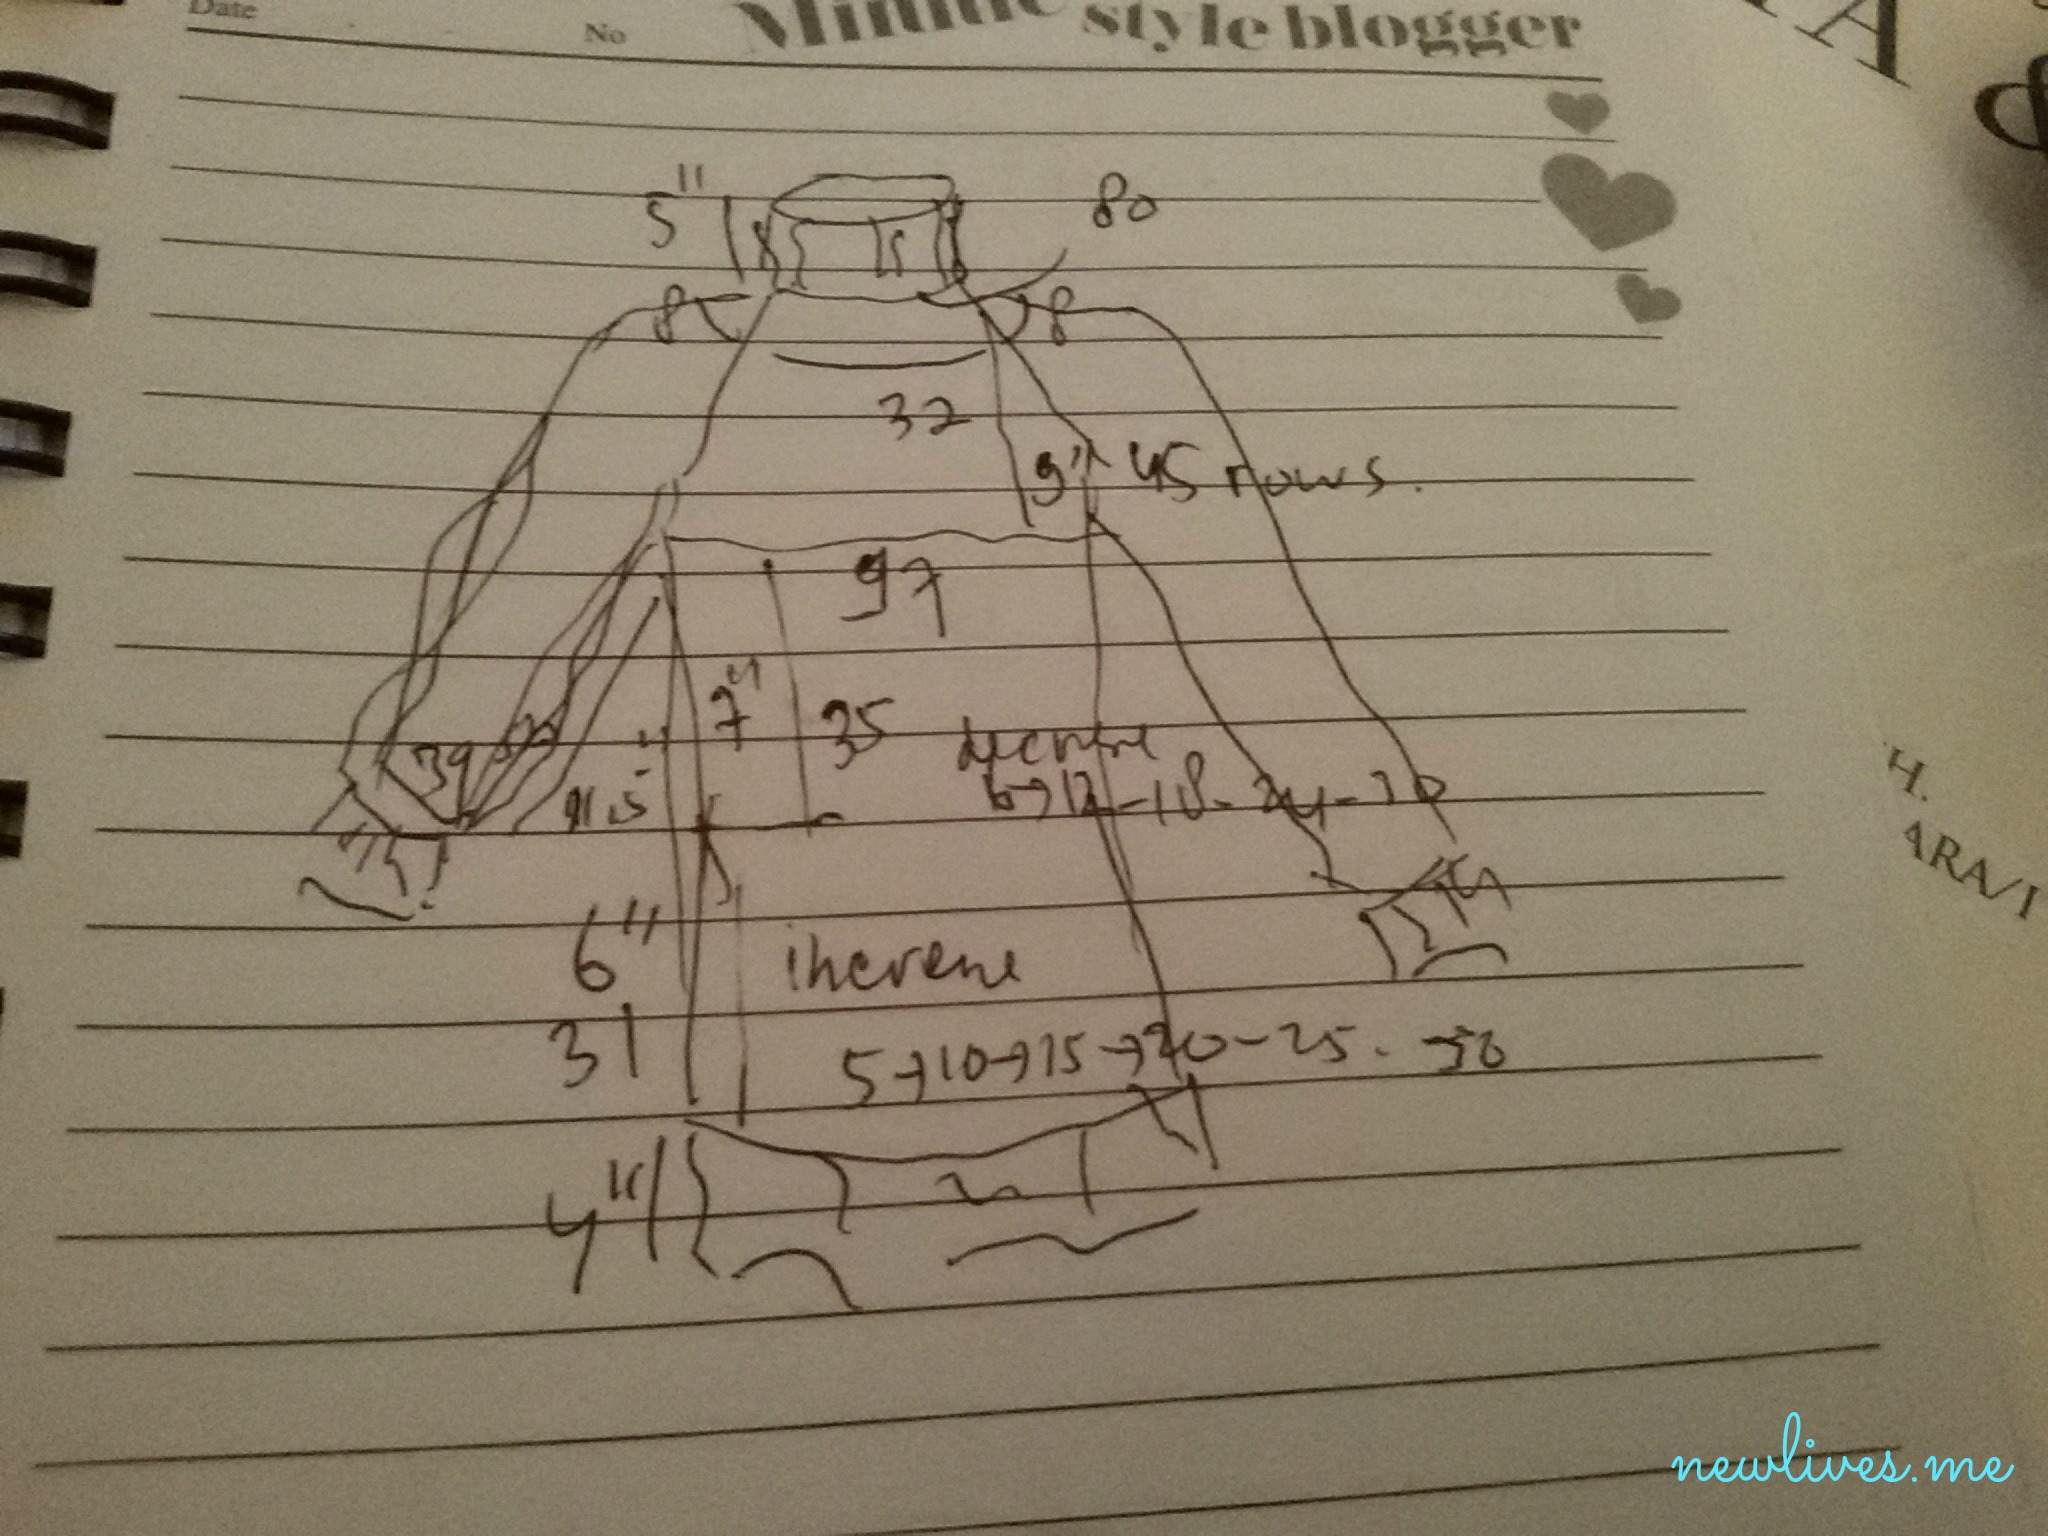 Date
No
style blogger
5"
80
8
8
32
9" 45 rows.
97
7"
35
39
decrese
11.5"
6→12-18-24-30
6"
increse
31
5→10→15→20-25-30
4"
H.
ARA/I
newlives.me